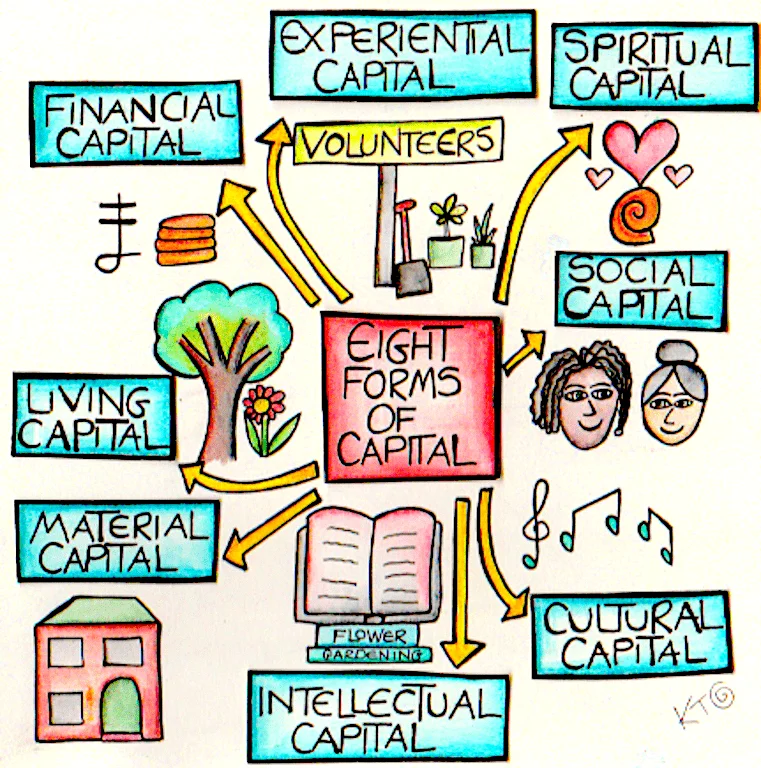 EXPERIENTIAL
CAPITAL
SPIRITUAL
CAPITAL
FINANCIAL
CAPITAL
VOLUNTEERS
SOCIAL
CAPITAL
EIGHT
FORMS
OF
CAPITAL
LIVING
CAPITAL
MATERIAL
CAPITAL
FLOWER
GARDENING
CULTURAL
CAPITAL
INTELLECTUAL
CAPITAL
KT